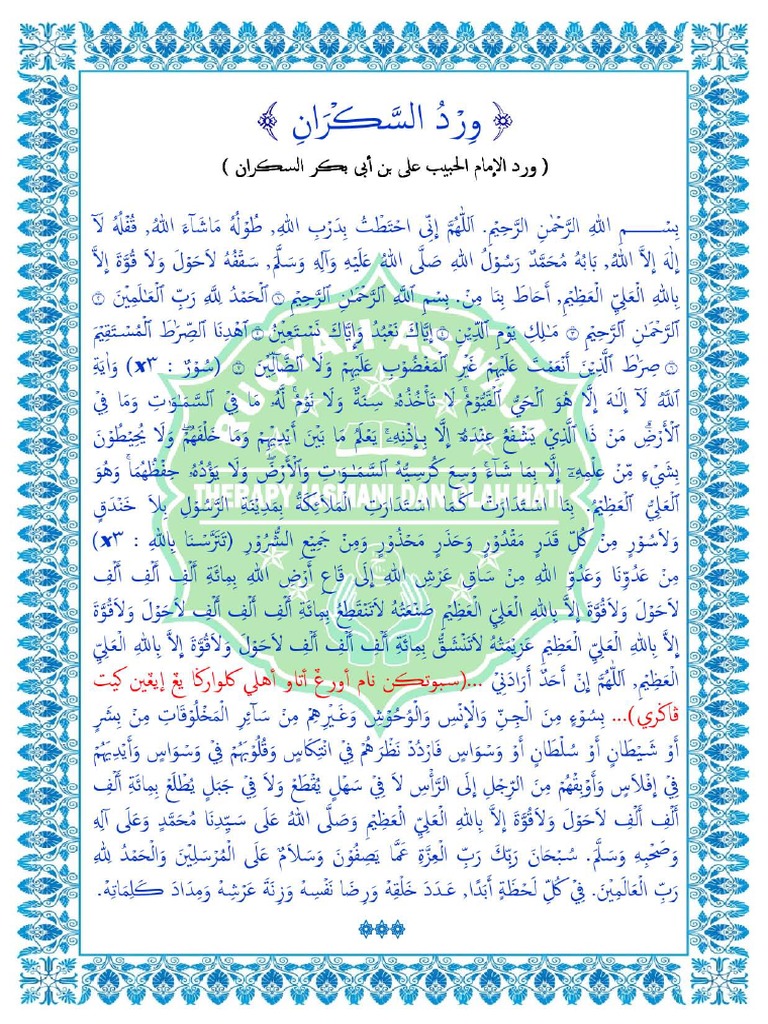 ﴿ وِرْدُ السَّكْرَانِ ﴾
( ورد الإمام الحبيب على بن أبى بكر السكران )
بِسْـــــمِ اللهِ الرَّحْمٰنِ الرَّحِيْمِ. اَللّٰهُمَّ إِنِّى احْتَطْتُ بِدَرْبِ اللهِ, طُوْلُهُ مَاشَآءَ اللهُ, قُفْلُهُ لَآ
إِلٰهَ إِلاَّ اللهُ, بَابُهُ مُحَمَّدٌ رَسُوْلُ اللهِ صَلَّى اللهُ عَلَيْهِ وَآلِهِ وَسَلَّمَ, سَقْفُهُ لاَحَوْلَ وَلاَ قُوَّةَ إِلاَّ
بِاللهِ الْعَلِيِّ الْعَظِيْمِ, أَحَاطَ بِنَا مِنْ. بِسْمِ اللَّهِ الرَّحْمٰنِ الرَّحِيْمِ ۝١ اَلْحَمْدُ لِلَّهِ رَبِّ الْعَالَمِيْنَ ۝٢
الرَّحْمٰنِ الرَّحِيْمِ ۝٣ مَـٰلِكِ يَوْمِ الدِّيْنِ ۝٤ إِيَّاكَ نَعْبُدُ وَإِيَّاكَ نَسْتَعِيْنُ ۝٥ اهْدِنَا الصِّرٰطَ الْمُسْتَقِيْمَ
۝٦ صِرٰطَ الَّذِيْنَ أَنْعَمْتَ عَلَيْهِمْ غَيْرِ الْمَغْضُوْبِ عَلَيْهِمْ وَلَا الضَّآلِّيْنَ ۝٧ (سُوْرٌ : x٣) وَاٰيَةِ
اَللَّهُ لَآ إِلٰهَ إِلَّا هُوَ الْحَيُّ الْقَيُّوْمُ ۚ لَا تَأْخُذُهُۥ سِنَةٌ وَلَا نَوْمٌ ۚ لَّهُۥ مَا فِي السَّمٰوٰتِ وَمَا فِي
الْأَرْضِ ۗ مَنْ ذَا الَّذِيْ يَشْفَعُ عِنْدَهُۥٓ إِلَّا بِإِذْنِهِۦ ۚ يَعْلَمُ مَا بَيْنَ أَيْدِيْهِمْ وَمَا خَلْفَهُمْ ۖ وَلَا يُحِيْطُوْنَ
بِشَيْءٍ مِّنْ عِلْمِهِۦٓ إِلَّا بِمَا شَآءَ ۚ وَسِعَ كُرْسِيُّهُ السَّمٰوٰتِ وَالْأَرْضَ ۖ وَلَا يَؤُدُهُۥ حِفْظُهُمَا ۚ وَهُوَ
الْعَلِيُّ الْعَظِيْمُ. بِنَا اسْتَدَارَتْ كَمَا اسْتَدَارَتِ الْمَلَآئِكَةُ بِمَدِيْنَةِ الرَّسُوْلِ بِلَا خَنْدَقٍ
وَلَاسُوْرٍ مِنْ كُلِّ قَدَرٍ مَقْدُوْرٍ وَحَذَرٍ مَحْذُوْرٍ وَمِنْ جَمِيْعِ الشُّرُوْرِ (تَتَرَّسْنَا بِاللهِ : x٣)
مِنْ عَدُوِّنَا وَعَدُوِّ اللهِ مِنْ سَاقِ عَرْشِ اللهِ إِلَى قَاعِ أَرْضِ اللهِ بِمِائَةِ أَلْفِ أَلْفِ أَلْفِ
لاَحَوْلَ وَلاَقُوَّةَ إِلاَّ بِاللهِ الْعَلِيِّ الْعَظِيْمِ صَنْعَتُهُ لاَتَنْقَطِعُ بِمِائَةِ أَلْفِ أَلْفِ أَلْفِ لاَحَوْلَ وَلاَقُوَّةَ
إِلاَّ بِاللهِ الْعَلِيِّ الْعَظِيْمِ عَزِيْمَتُهُ لاَتَنْشَقُّ بِمِائَةِ أَلْفِ أَلْفِ أَلْفِ لاَحَوْلَ وَلاَقُوَّةَ إِلاَّ بِاللهِ الْعَلِيِّ
الْعَظِيْمِ, اَللّٰهُمَّ إِنْ أَحَدٌ أَرَادَنِيْ ...(سبوتكن نام أورڠ أتاو أهلي كلواركا يڠ إيڠين كيت
ڤاكري)... بِسُوْءٍ مِنَ الْجِنِّ وَالْإِنْسِ وَالْوُحُوْشِ وَغَيْرِهِمْ مِنْ سَآئِرِ الْمَخْلُوْقَاتِ مِنْ بَشَرٍ
أَوْ شَيْطَانٍ أَوْ سُلْطَانٍ أَوْ وَسْوَاسٍ فَارْدُدْ نَظَرَهُمْ فِيْ انْتِكَاسٍ وَقُلُوْبَهُمْ فِيْ وَسْوَاسٍ وَأَيْدِيَهُمْ
فِيْ إِفْلَاسٍ وَأَوْبِقْهُمْ مِنَ الرِّجْلِ إِلَى الرَّأْسِ لاَ فِيْ سَهْلٍ يُقْطَعُ وَلاَ فِيْ جَبَلٍ يُطْلَعُ بِمِائَةِ أَلْفِ
أَلْفِ أَلْفِ لاَحَوْلَ وَلاَقُوَّةَ إِلاَّ بِاللهِ الْعَلِيِّ الْعَظِيْمِ وَصَلَّى اللهُ عَلَى سَيِّدِنَا مُحَمَّدٍ وَعَلَى آلِهِ
وَصَحْبِهِ وَسَلَّمَ. سُبْحَانَ رَبِّكَ رَبِّ الْعِزَّةِ عَمَّا يَصِفُوْنَ وَسَلاَمٌ عَلَى الْمُرْسَلِيْنَ وَالْحَمْدُ لِلهِ
رَبِّ الْعَالَمِيْنَ. فِيْ كُلِّ لَحْظَةٍ أَبَدًا, عَدَدَ خَلْقِهِ وَرِضَا نَفْسِهِ وَزِنَةَ عَرْشِهِ وَمِدَادَ كَلِمَاتِهِ.
RUQYAH ASWAJA
THERAPY JASMANI DAN OLAH HATI